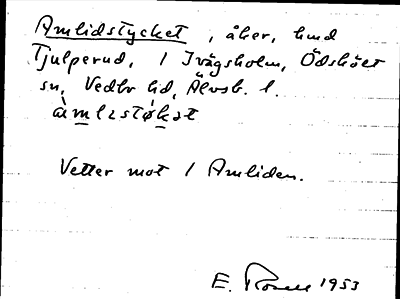 Amlidstycket, åker, hmd
Tjulperud, 1 Ivägsholm, Ödskölt
sn, Vedbo hd, Älvsb. l.
àmlıstø̀kət
Vetter mot 1 Amliden.
E. 1953